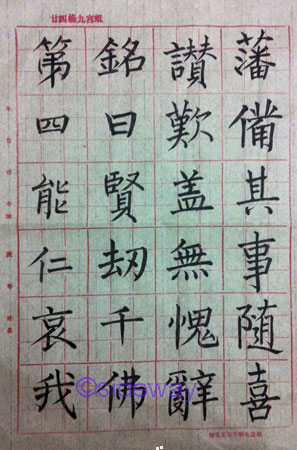 廿四格九宮紙
藩備其事隨喜
讃歎盖無愧辭
銘曰賢刼千佛
第四能仁哀我
©sideway